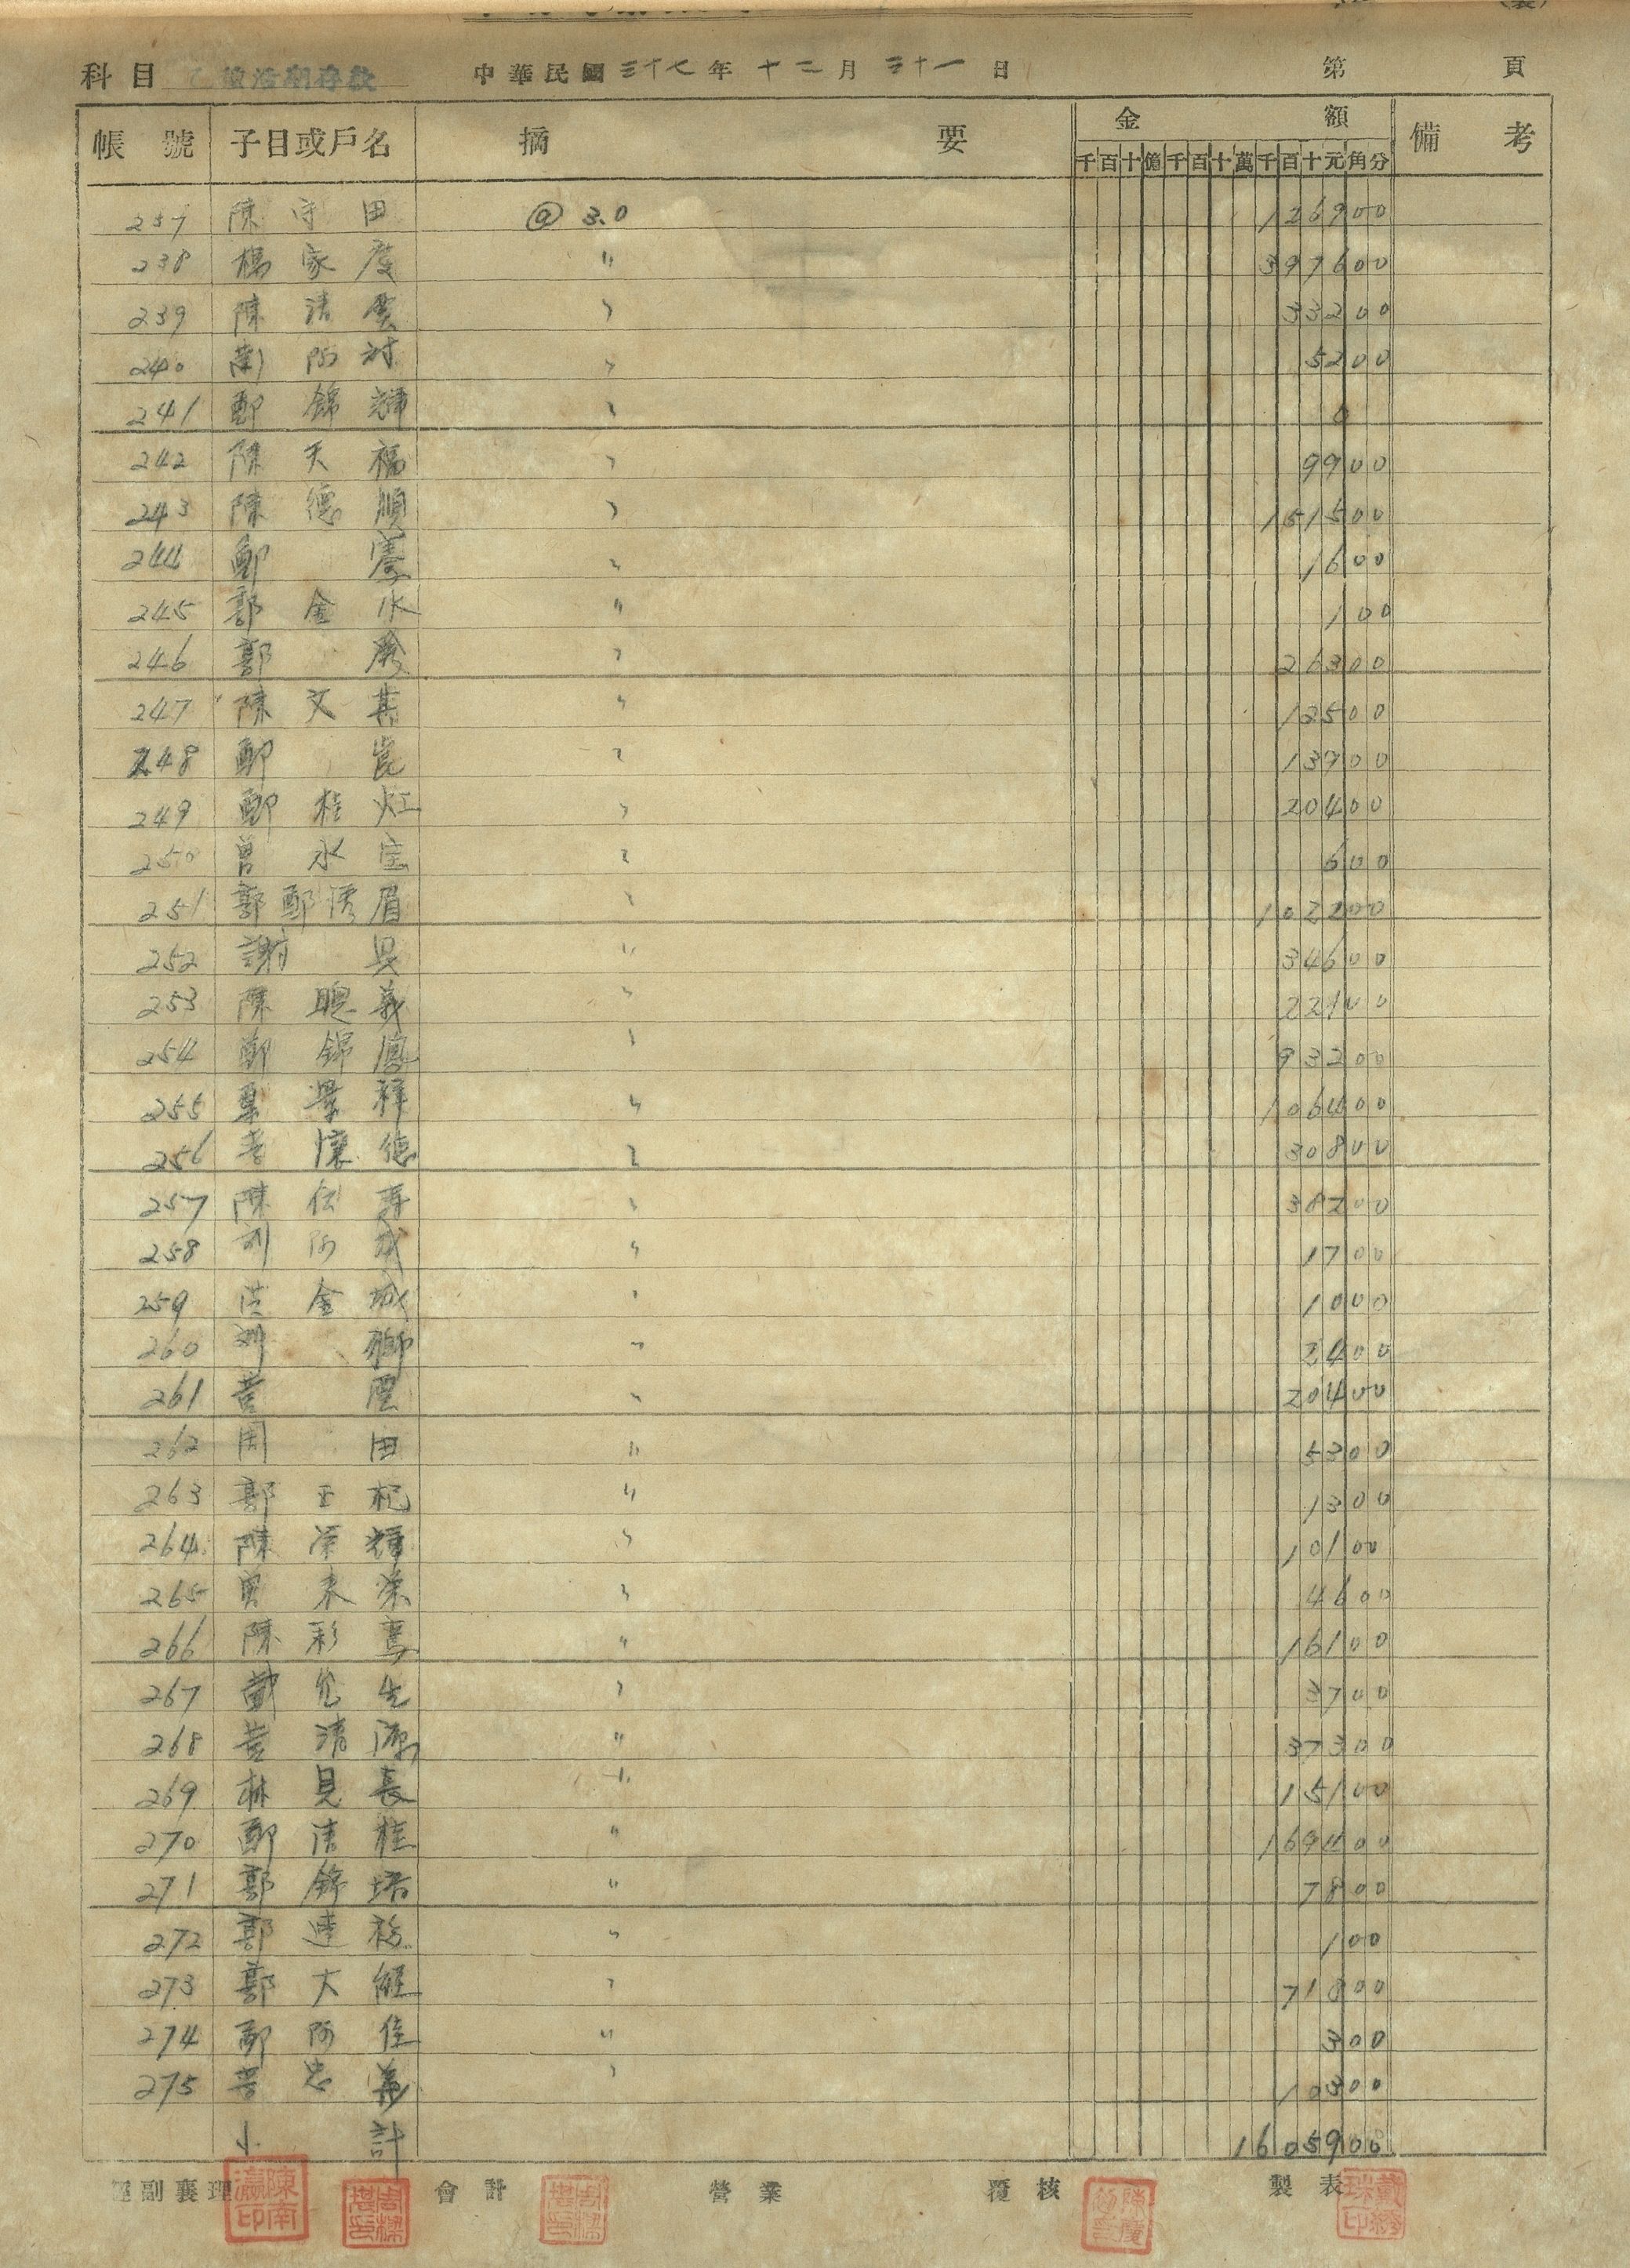 科目 乙種活期存款 中華民國三十七年十二月三十一日 第 頁
帳號 子目或戶名 摘要 金額 備考
千百十億千百十萬千百十元角分
237 陳守田 @ 3.0 126900
238 楊家慶 〃 397600
239 陳清 〃 33200
240 阿 〃 5200
241 鄭錦輝 〃 0
242 陳天福 〃 9900
243 陳德順 〃 151500
244 鄭 〃 1600
245 郭金水 〃 100
246 郭 〃 26300
247 陳文其 〃 12500
248 鄭崑 〃 13900
249 鄭桂灶 〃 20400
250 曾水 〃 600
251 郭鄭 眉 〃 102200
252 謝 〃 34600
253 陳聰義 〃 22100
254 鄭錦鳳 〃 93200
255 葉 祥 〃 106400
256 懷德 〃 30800
257 陳 〃 38200
258 阿 〃 1700
259 洪金城 〃 1000
260 〃 2400
261 黃 〃 20400
262 周田 〃 5300
263 郭玉杞 〃 1300
264 陳榮輝 〃 10100
265 曾 〃 4600
266 陳彩鸞 〃 16100
267 戴 先 〃 3700
268 黃清源 〃 37300
269 林見長 〃 15100
270 鄭清桂 〃 169400
271 郭錦培 〃 7800
272 郭 〃 100
273 郭大 〃 71800
274 鄭阿佳 〃 300
275 黃忠義 〃 10300
小計 1605900
經副襄理 會計 營業 覆核 製表